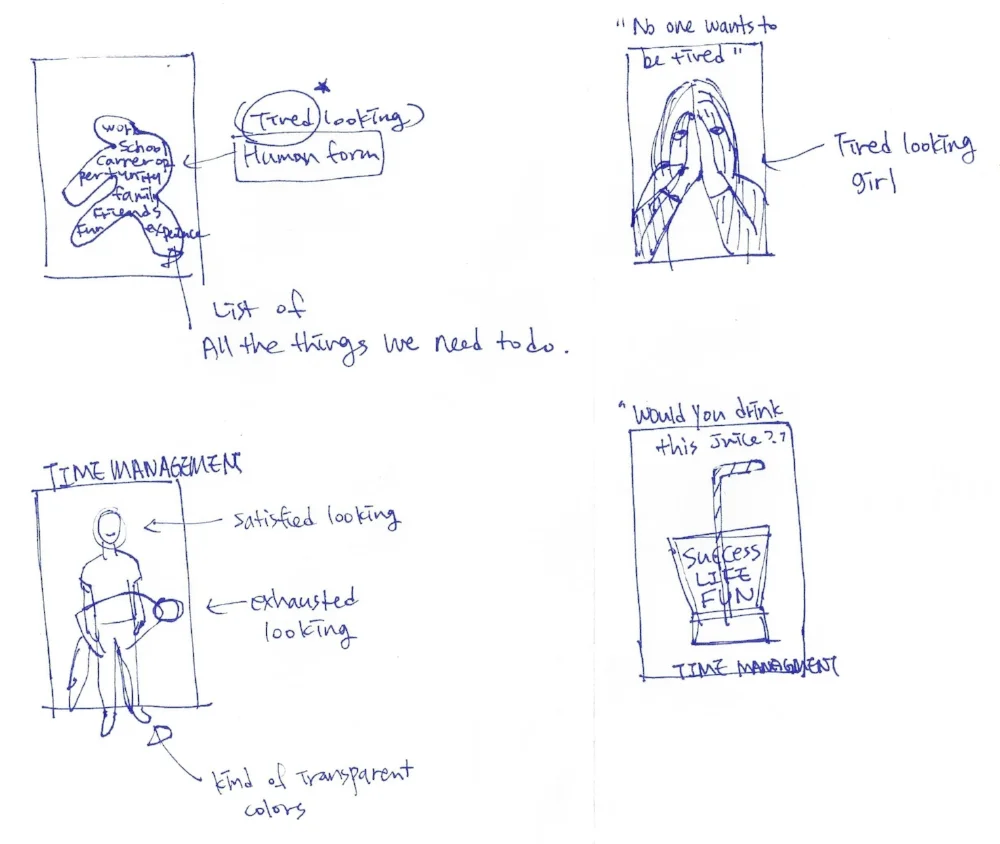 work
School
Carrer op
pertunity
family
Friends
Fun experience
(Tired looking)
Human form
List of
All the things we need to do.
"No one wants to
be tired"
Tired looking
girl
TIME MANAGEMENT
satisfied looking
exhausted
looking
kind of transparent
colors
"Would you drink
this juice??
SuCCess
LIFE
FUN
TIME MANAGMENT